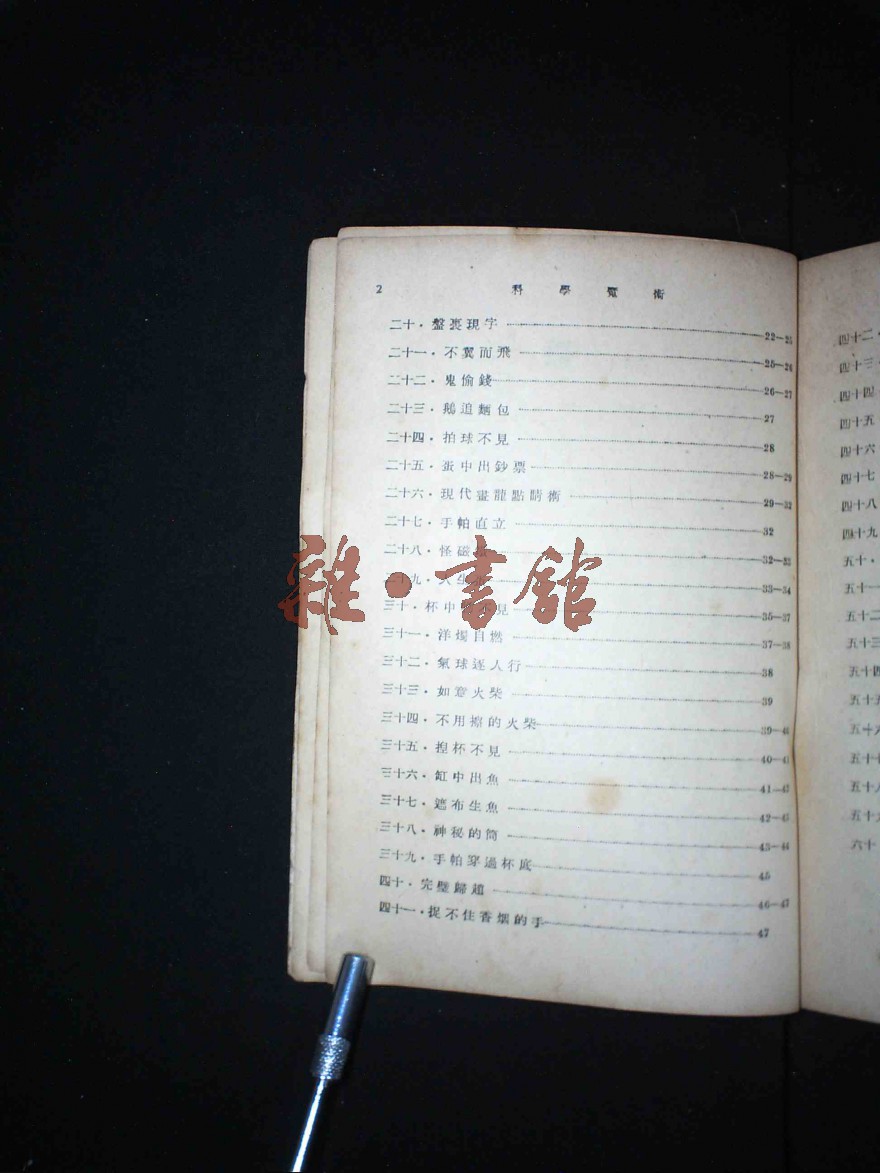 2 科學魔術
二十·盤裏現字 22—25
二十一·不翼而飛 25—26
二十二·鬼偷錢 26—27
二十三·鵝追麵包 27
二十四·拍球不見 28
二十五·蛋中出鈔票 28—29
二十六·現代畫龍點睛術 29—32
二十七·手帕直立 32
二十八·怪磁 32—33
二十九·人生 33—34
三十·杯中 不見 35—37
三十一·洋燭自燃 37—38
三十二·氣球逐人行 38
三十三·如意火柴 39
三十四·不用擦的火柴 39—40
三十五·揑杯不見 40—41
三十六·缸中出魚 41—42
三十七·遮布生魚 42—43
三十八·神秘的筒 43—44
三十九·手帕穿過杯底 45
四十·完璧歸趙 46—47
四十一·捉不住香烟的手 47
雜·書館
四十二·
四十三·
四十四·
四十五
四十六
四十七
四十八
四十九
五十·
五十一
五十二
五十三
五十四
五十五
五十六
五十七
五十八
五十九
六十·